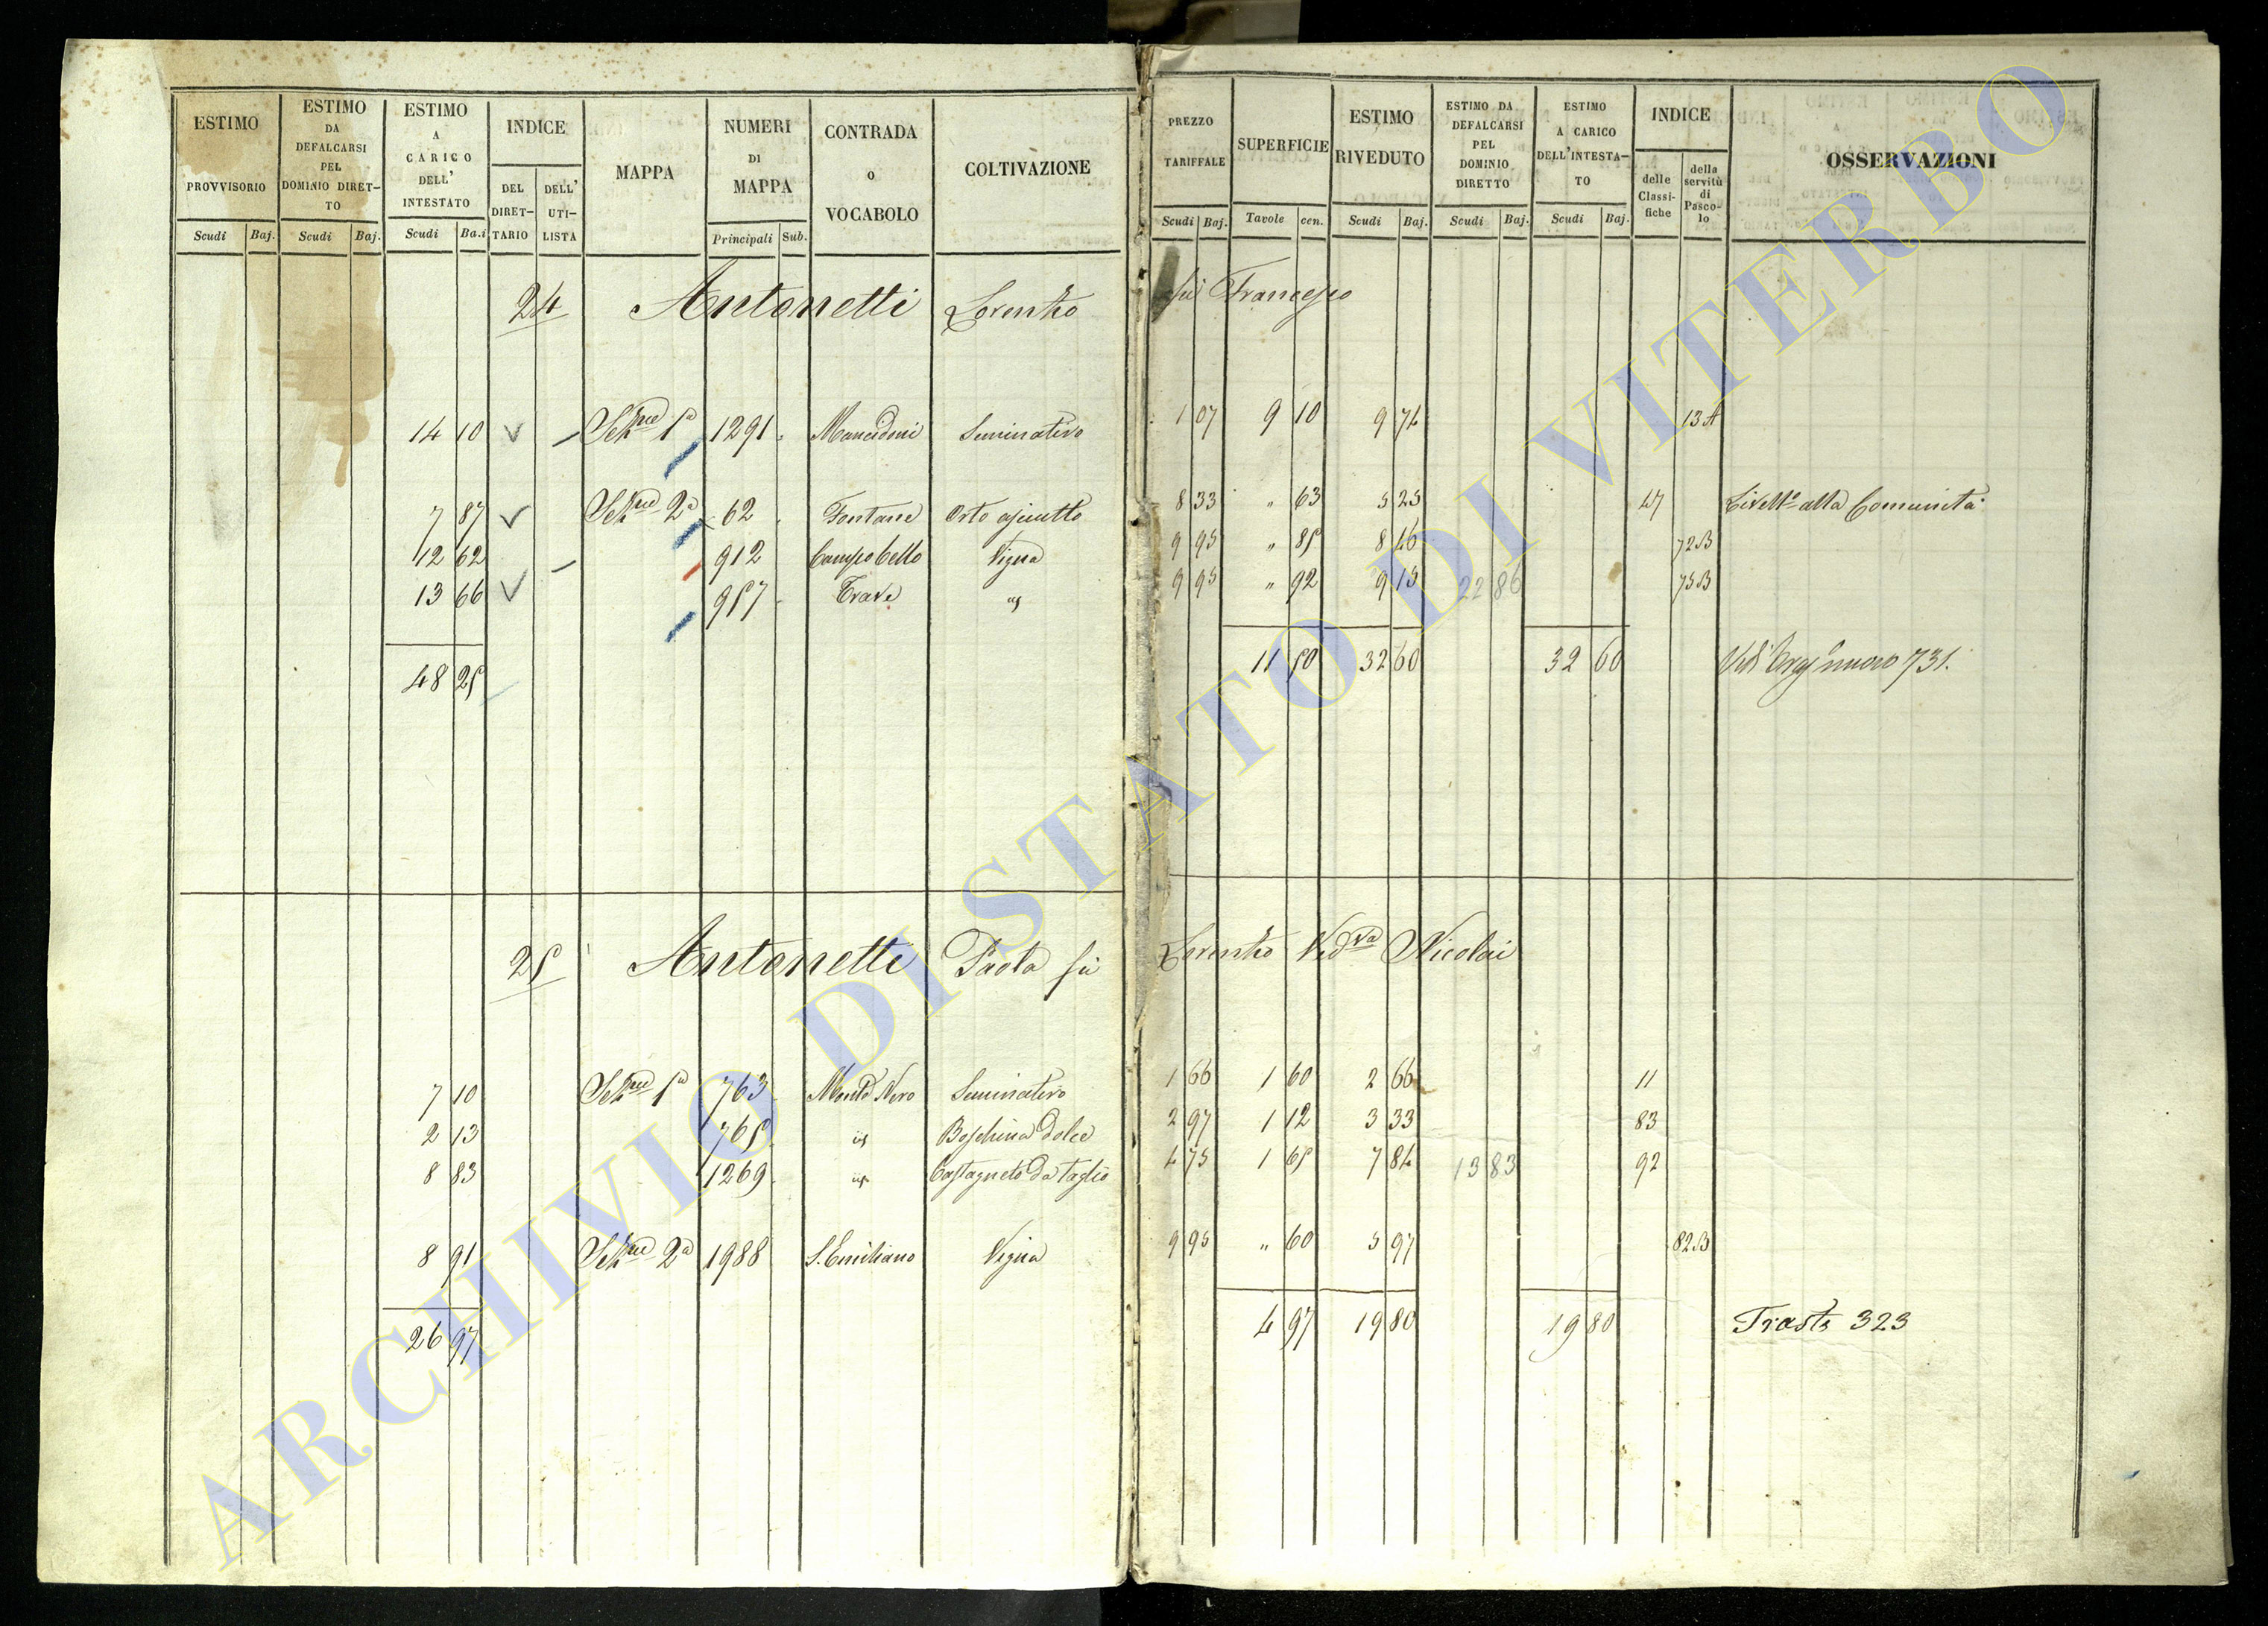 ESTIMO PROVVISORIO | ESTIMO DA DEFALCARSI PEL DOMINIO DIRET-TO | ESTIMO A CARICO DELL' INTESTATO | INDICE | MAPPA | NUMERI DI MAPPA | CONTRADA O VOCABOLO | COLTIVAZIONE
DEL DIRET-TARIO | DELL' UTI-LISTA
Scudi | Baj. | Scudi | Baj. | Scudi | Ba.i | Principali | Sub.
24 Antonetti Lorenzo
14 10 1ª 1291 Seminativo
7 87 2ª 62 Fontane Orto
12 62 912 Campo bello Vigna
13 66 957 Trave
48 25
25 Antonetti Paola fu
7 10 1ª 763 Monte Nero Seminativo
2 13 765 Boschina dolce
8 83 1269 Castagneto da taglio
8 91 2ª 1988 S. Emiliano Vigna
26 97
PREZZO TARIFFALE | SUPERFICIE | ESTIMO RIVEDUTO | ESTIMO DA DEFALCARSI PEL DOMINIO DIRETTO | ESTIMO A CARICO DELL'INTESTA-TO | INDICE | OSSERVAZIONI
delle Classi-fiche | della servitù di Pasco-lo
Scudi | Baj. | Tavole | cen. | Scudi | Baj. | Scudi | Baj. | Scudi | Baj.
fu Francesco
1 07 9 10 9 74 13 A
8 33 " 63 5 25 47 alla Comunità
9 95 " 85 8 46 72 B
9 95 " 92 9 15 22 86 75 B
11 50 32 60 32 60 nuovo 731.
Lorenzo Ved.va Nicolai
1 66 1 60 2 66 11
2 97 1 12 3 33 83
4 75 1 65 7 84 13 83 92
9 95 " 60 5 97 82 B
4 97 19 80 19 80 323
ARCHIVIO DI STATO DI VITERBO